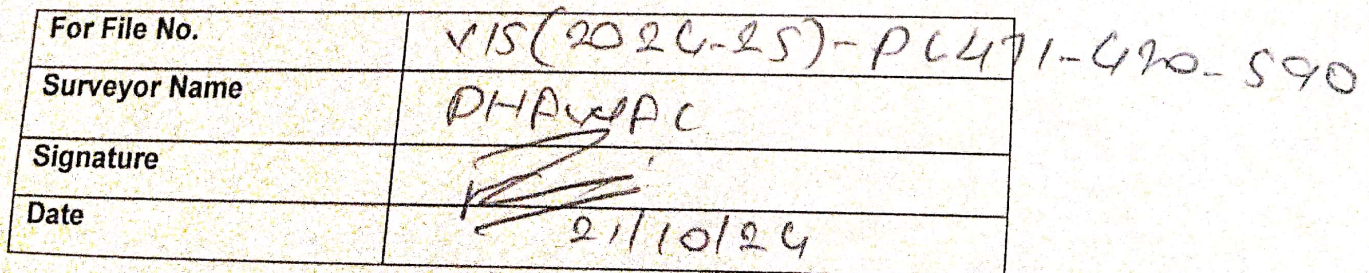 For File No. VIS(2024-25)-PL471-420-590
Surveyor Name DHAWAL
Signature
Date 21/10/24